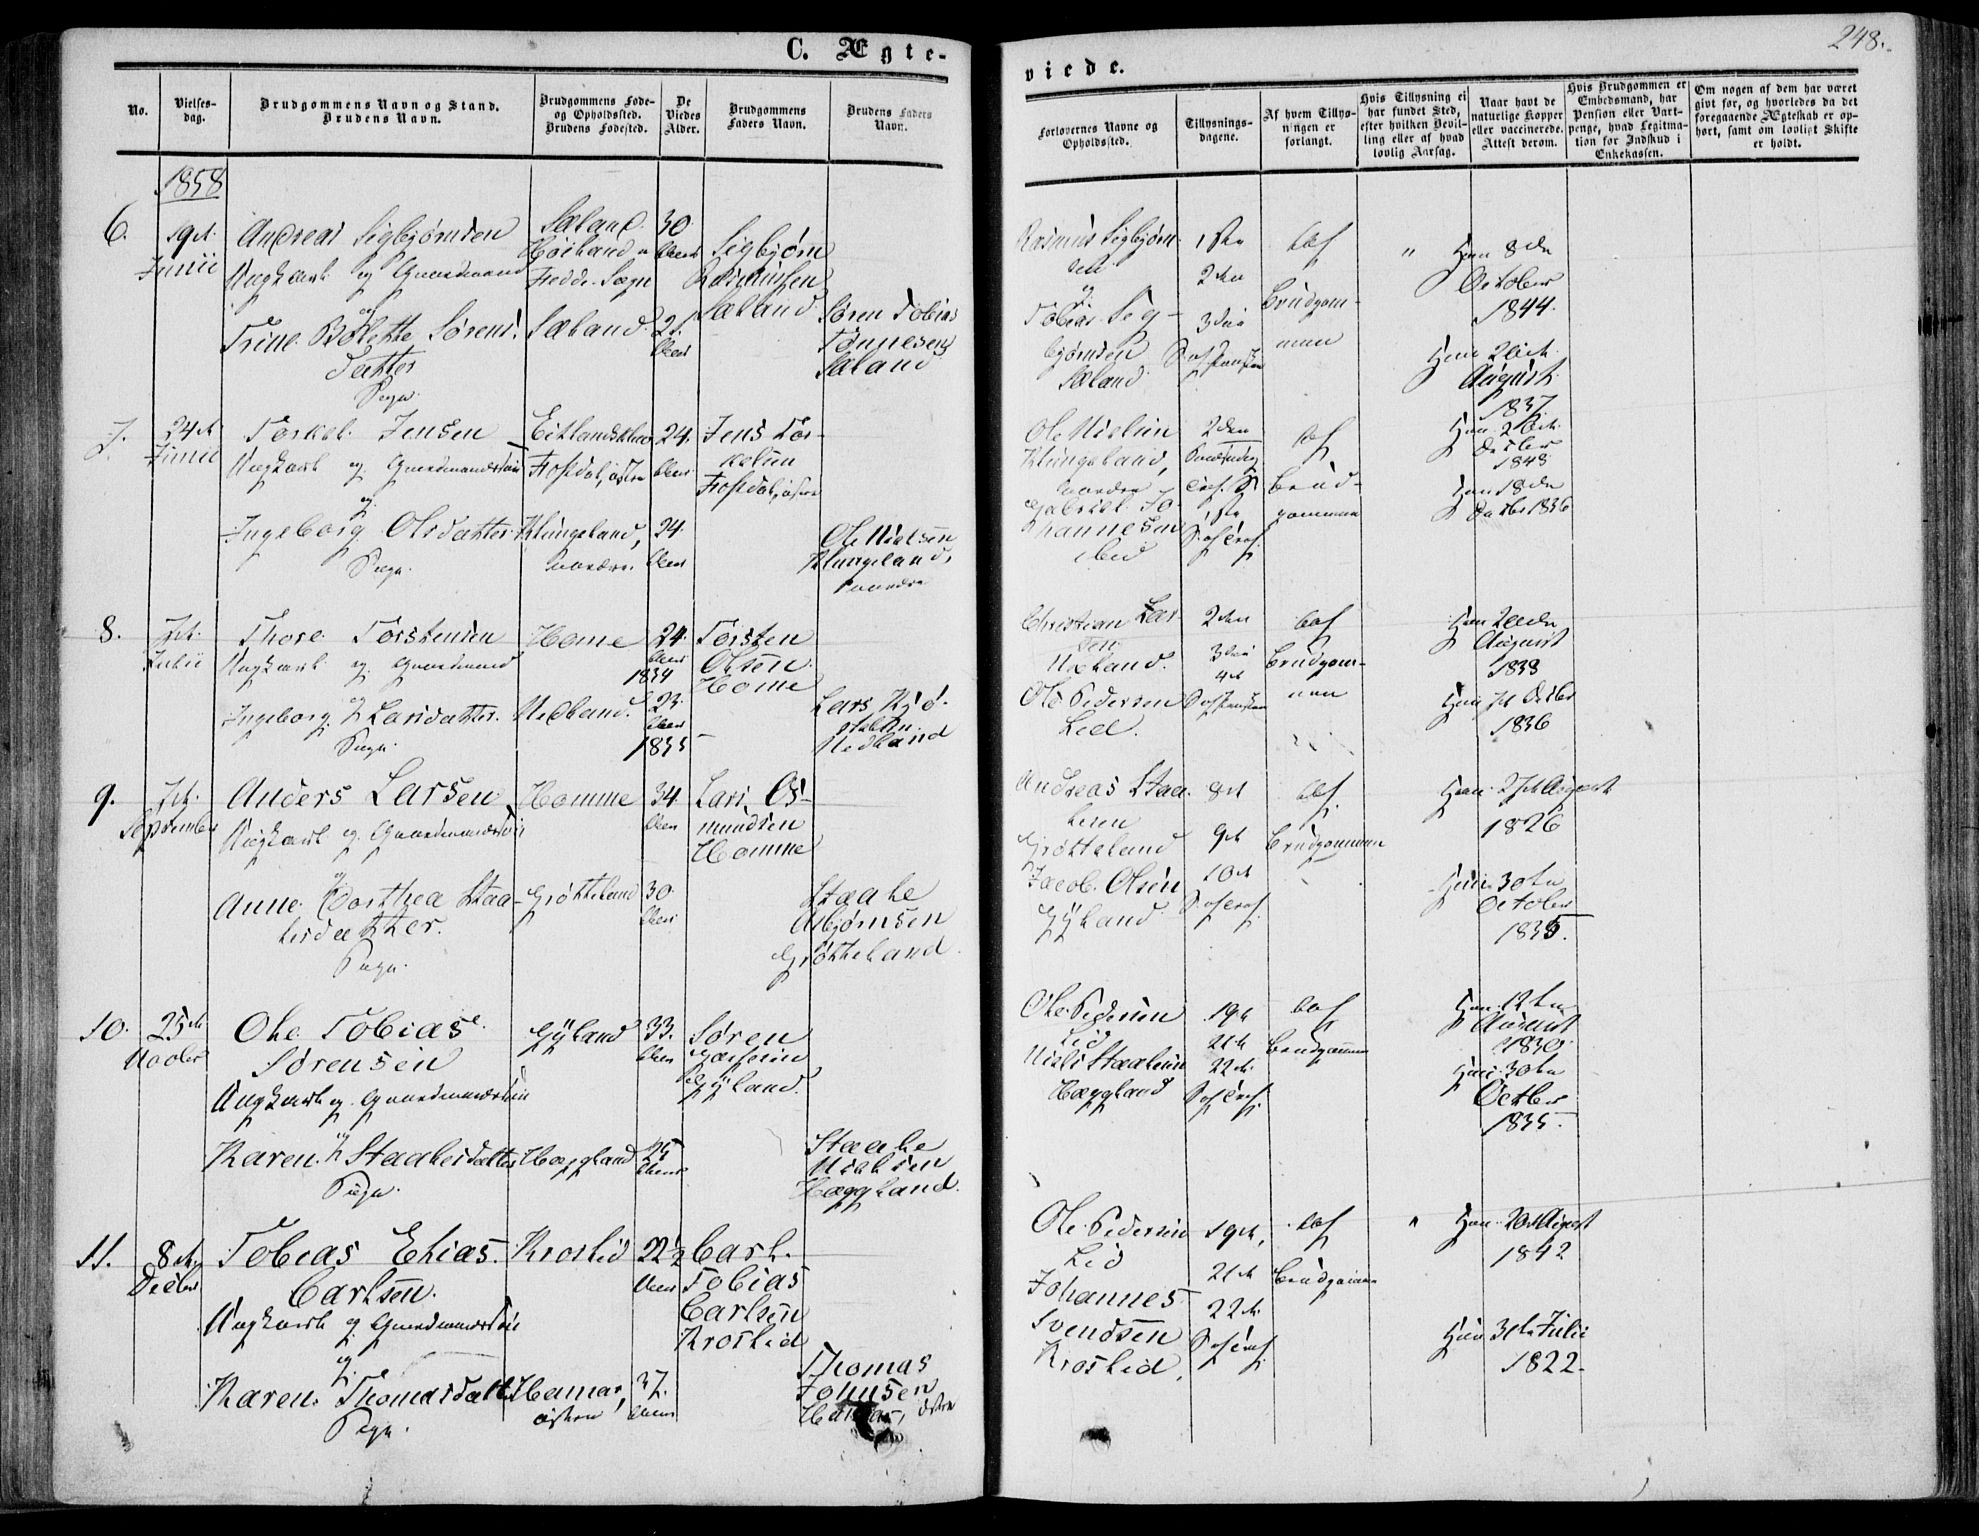 C. Ægte-
No.
Vielses-
dag.
Brudgommens Navn og Stand.
Brudens Navn.
Brudgommens Føde-
og Opholdssted.
Brudens Fødested.
De
Viedes
Alder.
Brudgommens
Faders Navn.
Brudens Faders
Navn.
1858
6.
19de
Junii
Andreas Sigbjørnsen
Ungkarl og Gaardmand
og
Trine Bolette Sørens-
datter
Pige.
Sæland
Høiland
Fedde Sogn
Sæland
30
Aar
21.
Aar
Sigbjørn
Rasmussen
Sæland
Søren Tobias
Tønnesen
Sæland
7.
24de
Junii
Torkel Jensen
Ungkarl og Gaardmandssøn
og
Ingeborg Olsdatter
Pige.
Fosdal, østre
Klungeland,
nordre.
24.
Aar
24.
Aar
Jens Tor-
kelsen
Fosdal, østre
Ole Nielsen
Klungeland,
nordre
8.
7de
Julii
Thore Torstensen
Ungkarl og Gaardmand
og
Ingeborg Larsdatter.
Pige.
Home
Nedland.
24.
Aar
1834
23.
Aar
1835
Torsten
Olsen
Home
Lars Kjø-
Nedland
9.
7de
September
Anders Larsen
Ungkarl og Gaardmandssøn
og
Anne Dorthea Staa-
lesdatter.
Pige.
Homme
Grøtteland
34
Aar
30
Aar
Lars Os-
mundsen
Homme
Staale
Asbjørnsen
Grøtteland.
10.
25de
Novbr
Ole Tobias
Sørensen
Ungkarl og Gaardmandssøn
og
Karen Staalesdatter
Pige.
Gyland
Hæggland
33.
Aar
25
Aar
Søren
Gyland.
Staale
Nielsen
Hæggland.
11.
8de
Decbr
Tobias Elias
Carlsen.
Ungkarl og Gaardmandssøn
og
Karen Thomasdatt.
Pige.
Kroslid
Hamar,
østre
22½
Aar
37.
Aar
Carl
Tobias
Carlsen
Kroslid
Thomas
Johnsen
Hamar, østre
248.
viede.
Forlovernes Navne og
Opholdssted.
Tillysnings-
dagene.
Af hvem Tillys-
ningen er
forlangt.
Hvis Tillysning ei
har fundet Sted,
efter hvilken Bevil-
ling eller af hvad
lovlig Aarsag.
Naar havt de
naturlige Kopper
eller vaccinerede.
Attest derom.
Hvis Brudgommen er
Embedsmand, har
Pension eller Vart-
penge, hvad Legitma-
tion for Indskud i
Enkekassen.
Om nogen af dem har været
givt før, og hvorledes da det
foregaaende Ægteskab er op-
hørt, samt om lovligt Skifte
er holdt.
Rasmus Sigbjørn-
sen
og
Tobias Sig-
bjørnsen
Sæland.
1ste
2den
3die
S. af
af
Brudgom-
men
"
Han 8de
October
1844.
Hun 26de
August
1837
Ole Nielsen
Klungeland,
nordre
Gabriel Jo-
hannesen
Lid
2den
1ste
af
Brud-
gommen
Han 26de
1843
Hun 18de
1836
Christian Lar-
sen
Nedland.
Ole Pedersen
Lid.
2den
3die
4de
af
Brudgom-
men
August
1838
Hun 7de Octbr
1836
Andreas Staa-
lesen
Grøtteland
Jacob Olsen
Gyland
8de
9de
10de
af
Brudgommen
Han 27de August
1826
Hun 30te
October
1835.
Ole Pedersen
Lid
Niels Staalesen
Hæggland
19de
21de
22de
af
Brudgommen
Han 12te
August
1830
Hun 30te
Octbr
1835.
Ole Pedersen
Lid
Johannes
Svendsen
Kroslid.
19de,
21de
22de
af
Brudgommen
"
Han 20de August
1842
Hun 31te Julii
1822.